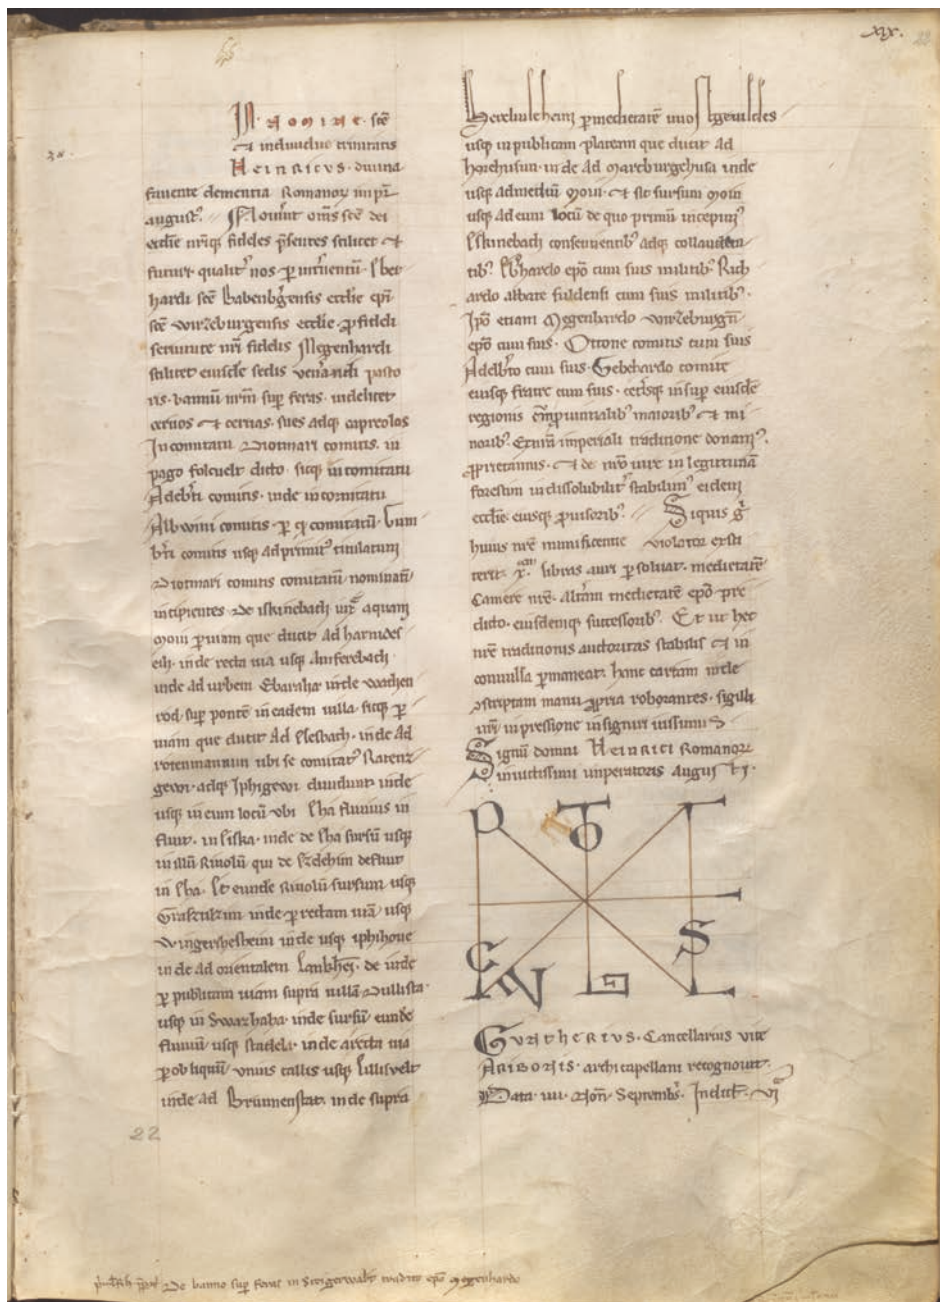 xix.
22
In nomine scē
& indiuidue trinitatis
Heinricvs · diuina
fauente clementia Romanoꝝ impr̄
august᷒. Nouint om̄s scē dei
eccl̄ie nrīq; fideles p̄sentes scilicet &
futuri qualit᷑ nos ꝑ int᷑uentū Ebꝛ
hardi scē Babenbgensis eccl̄ie ep̄i
scē Wirzeburgensis eccl̄ie ꝓ fideli
seruitute nr̄i fidelis Megenhardi
scilicet eiusdē sedis ven᷑andi pasto
ris · bannū nr̄m sup feras · uidelicet
ceruos & ceruas · sues adq; capreolos
In comitatu Diotmari comitis · in
pago folcuelt dicto · sicq; in comitatu
Adebti comitis · inde in comitatu
Albwini comitis · ꝑ comitatū · Gum
bti comitis usq; ad primit᷒ titulatum
Diotmari comitis comitatū nominatī
incipientes · De iskinebach aquam
moin ꝑ uiam que ducit ad harnides
eih · inde recta uia usq; Anferebach
inde ad urbem Ebaraha · inde wachen
rod · sup pontē in eadem uilla · sicq; ꝑ
uiam que ducit ad Elesbach · inde ad
rotenmannun ubi se comitat᷒ Ratenz
gewi · adq; Iphigewi diuidunt · inde
usq; in eum locū vbi Eha fluuius in
fluit · in Eiska · inde de Eha sursū usq;
in illū Riuolū qui de Ezelehim defluit
in Eha · Et eunde Riuolū sursum usq;
inde ꝑ rectam uiā usq;
Wingereshesheim inde usq; iphihoue
inde ad orientalem Lankhei · de inde
ꝑ publicam uiam supra uillā Dullista
usq; in Swarzhaha · inde sursū eundē
fluuiū usq; stadeli · inde a recta uia
ꝑ obliquū unius callis usq; Lillisuelt
inde ad Brunnenstat · inde supra
22
Herlulesheim ꝑ medietatē uuo
usq; in publicam plateam que ducit ad
horehusun · inde ad marcburgehusa inde
usq; ad mediū moin · & sic sursum moin
usq; ad eum locū de quo primū incepim᷒
Eskinebach · consentientib᷒ adq; collaudan
tib᷒ Ebhardo ep̄o cum suis militib᷒ Rich
ardo abbate fuldensi cum suis militib᷒ ·
Ip̄o etiam Megenhardo wirzeburgn̄
ep̄o cum suis · Ottone comitis cum suis
Adelbto cum suis · Gebehardo comite
eiusq; fratre cum suis · cetisq; insup eiusdē
regionis comprouintialib᷒ maiorib᷒ & mi
norib᷒. imperiali traditione donam᷒ ·
ꝓprietamus · & de nr̄o iure in legitimā
forestim indissolubilit᷑ stabilim᷒ eidem
eccl̄ie · eiusq; prouisorib᷒. Siquis g͛
huius nrē munificentie violator exti
terit · x. libras auri ꝑsoluat · medietatē
Camere nrē · alt᷑am medietatē ep̄o · pre
dicto · eiusdemq; successorib᷒. Et ut hec
nrē traditionis auctoritas stabilis & in
conuulsa ꝑmaneat · hanc cartam inde
ꝯscriptam manu ꝓpria roborantes · sigilli
nr̄i inpressione insigniri iussimus
Signū domni Heinrici Romanoꝝ
inuictissimi imperatoris Augusti ·
P T T
E S
R N G L
Gvntherivs · Cancellarius vice
Aribonis · archicapellani recognouit ·
Data · iiii · Noñ · Septembs · Indict · vi
De banno sup feras in Steigerwalt tradito ep̄o Megenhardo